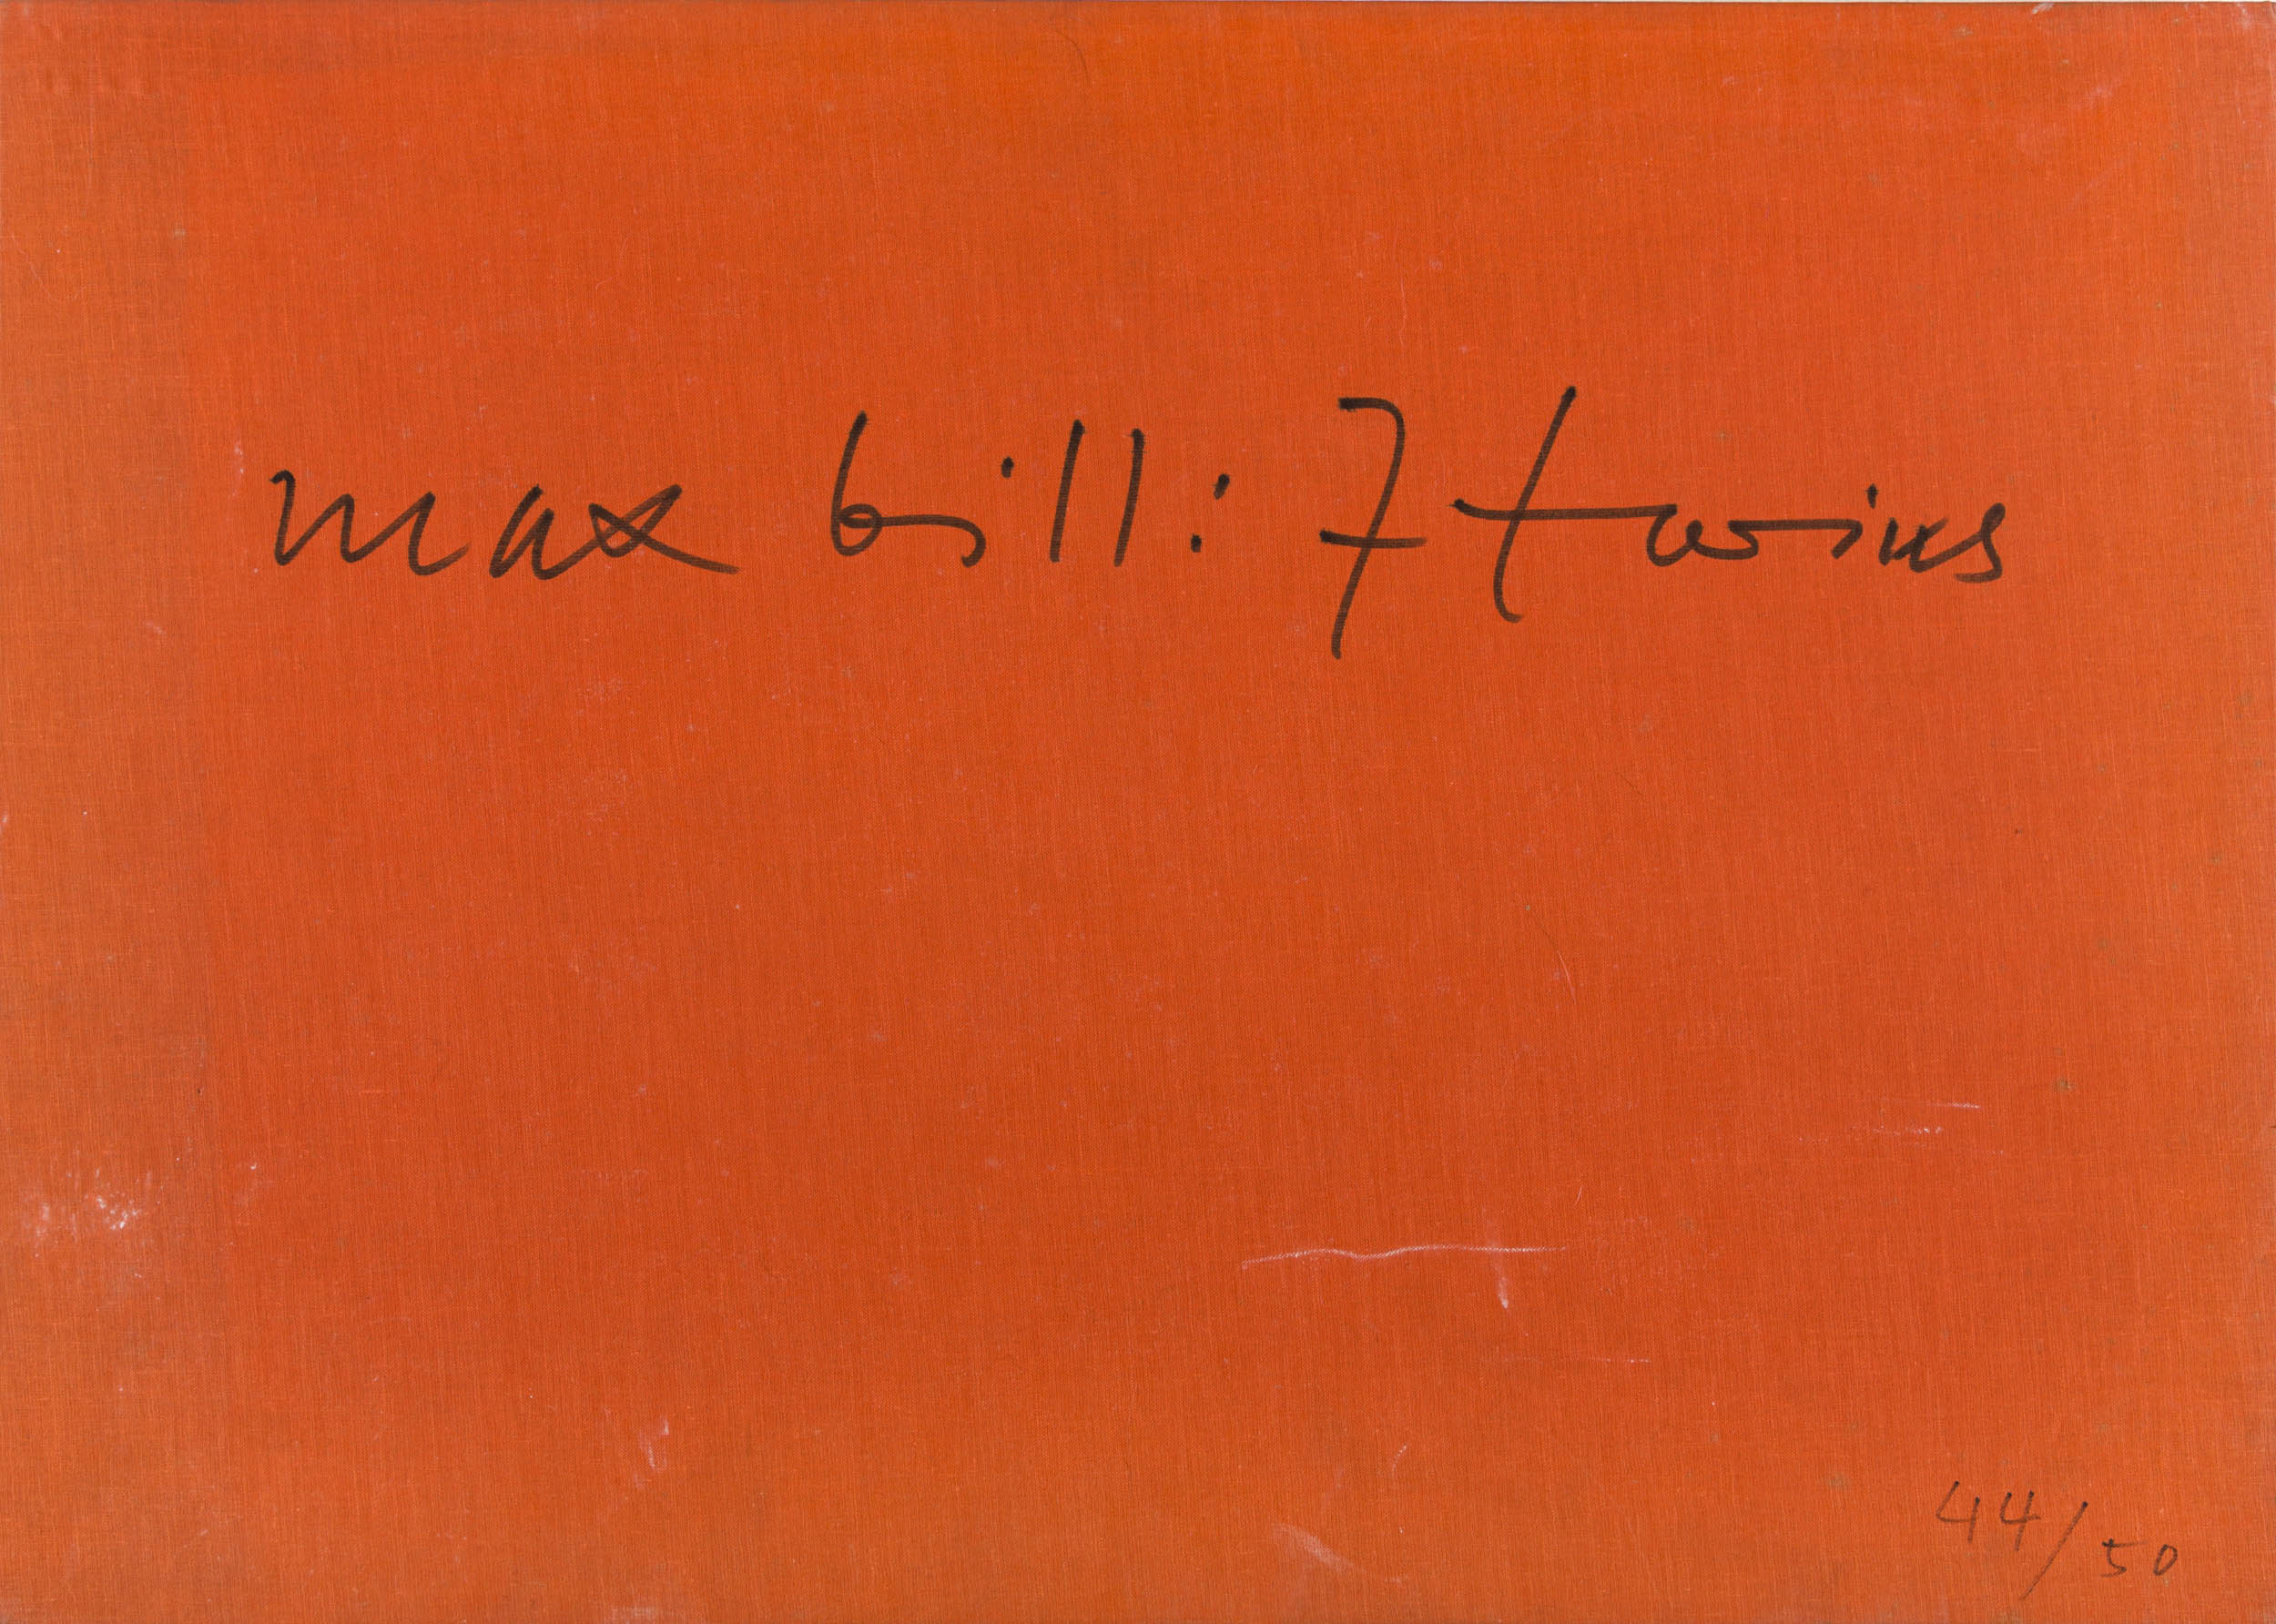 max bill: 7 twins
44/50